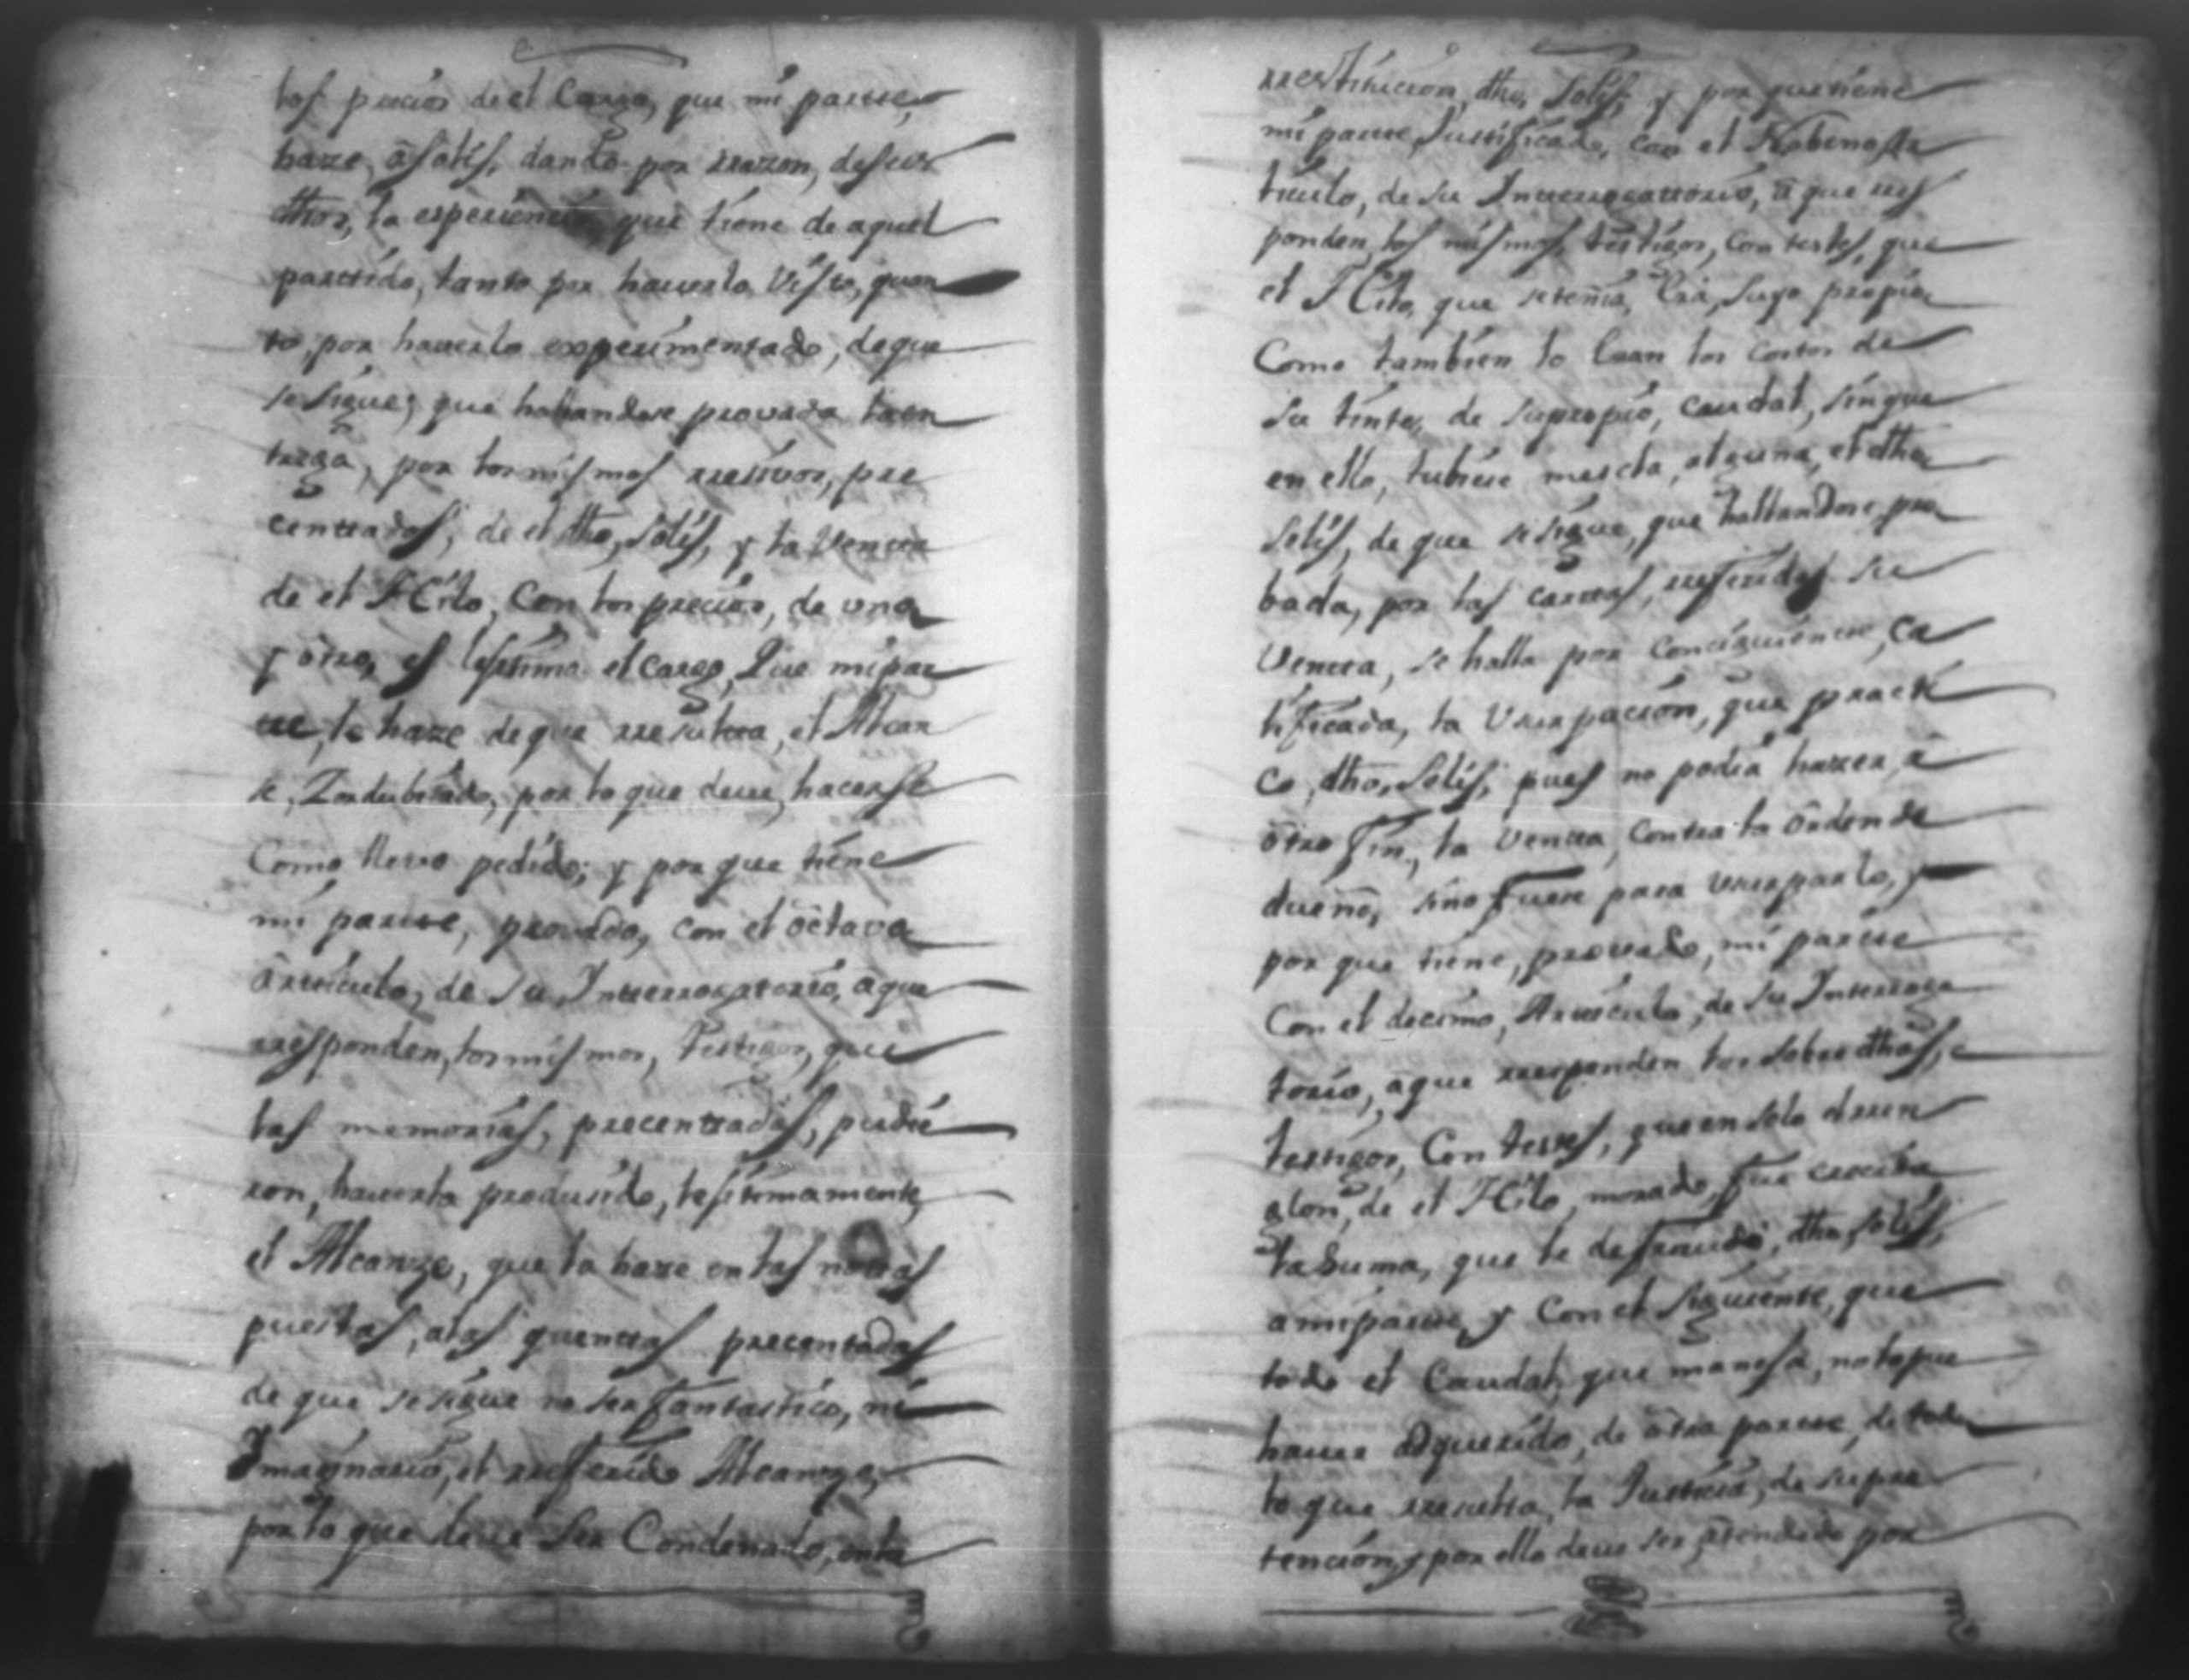 los precios de el Cargo, que mi partte,
haze, â Solis, dando por rrazon, de sus
dhos, la esperiencia, que tiene de aquel
parttido, tanto por hauerlo Visto, quan
to, por hauerlo experimentado, de que
se sigue, que hallandose provada la en
trega, por los mismos rresivos, pre
centtados, de el dho, Solis, y la Ventta
de el Hilo, Con los precios, de uno
y otro, es lexitimo el Cargo, Que mi par
tte, le haze de que rresultta, el Alcan
se, Indubitado, por lo que deue, hacerse
Como llevo pedido; y por que tiene
mi partte, provado, con el octavo
Artticulo, de Su Intterrogattorio, a que
rresponden, los mismos, Testigos, que
las memorias, precenttadas, pudie
ron, hauerla produsido, lexitimamente
el Alcanze, que la haze en las nottas
puestas, a las quenttas precentadas
de que se sigue no ser fantastico, ni
Imaginario, el rreferido Alcanze,
por lo que deue Ser Condenado, en la
rrestitucion, dho, Solis, y por que tiene
mi partte Justificado, con el Nobeno Ar
ticulo, de su Intterrogattorio, â que rres
ponden, los mismos, testigos, contestes, que
el Hilo, que se teñia, Era, Suyo propio
Como tambien lo Eran los costos de
Su tinte, de su propio, caudal, sin que
en ello, tubiese mescla, alguna, el dho
Solis, de que se sigue, que hallandose pro
bada, por las cartas, rreferidas su
Ventta, se halla por Conciguiente, ca
lificada, la Usurpacion, que practi
co, dho, Solis, pues no podia hazer, â
otro fin, la Ventta, Contra la ôrden de
dueño, sino fuese para usurparlo, y
por que tiene, provado, mi partte
Con el decimo, Artticulo, de Su Interroga
torio, a que rresponden los Sobre dhos,
testigos, Contestes, que en solo el rren
glon, de el Hilo, morado, fue crecida
la Suma, que le defraudó, dho, Solis,
a mi partte, y Con el Siguiente, que
todo el Caudal, que maneja, no lo pue
hauer adquerido, de otra partte, de todo
lo que rresulta, la Justicia, de su pre
tencion, y por ello deue ser atendido por